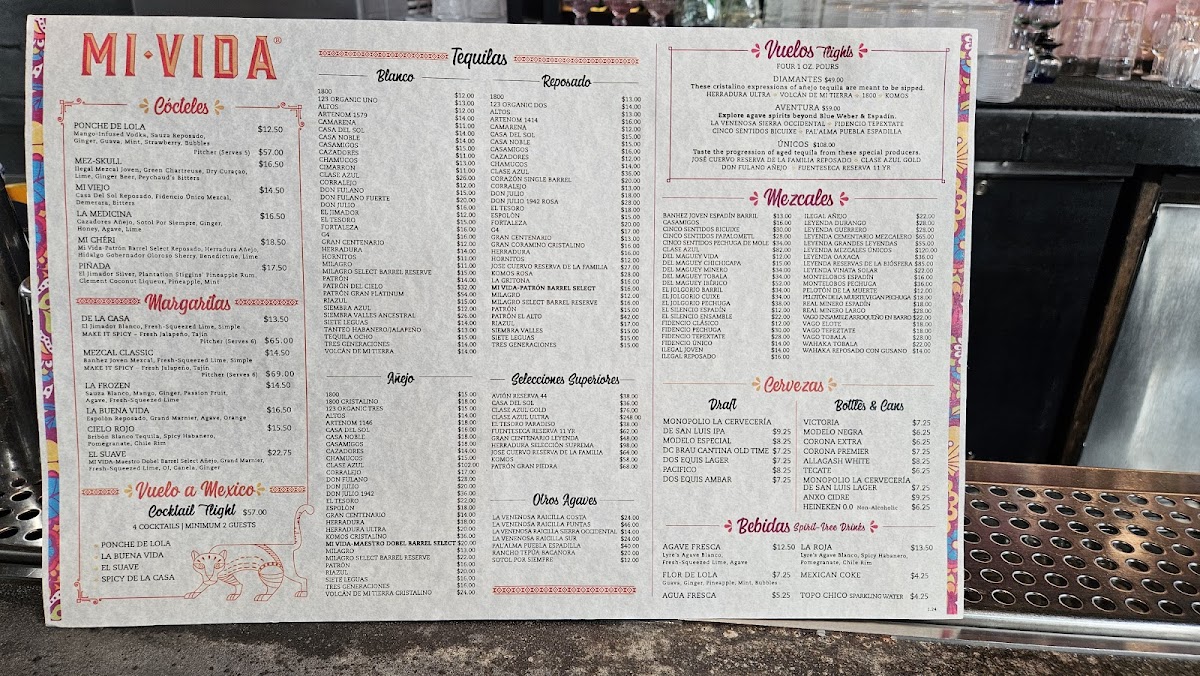 MI·VIDA®
Cócteles
PONCHE DE LOLA $12.50
Mango-Infused Vodka, Sauza Reposado,
Ginger, Guava, Mint, Strawberry, Bubbles
Pitcher (Serves 5) $57.00
MEZ-SKULL $16.50
Ilegal Mezcal Joven, Green Chartreuse, Dry Curaçao,
Lime, Ginger Beer, Peychaud's Bitters
MI VIEJO $14.50
Casa Del Sol Reposado, Fidencio Único Mezcal,
Demerara, Bitters
LA MEDICINA $16.50
Cazadores Añejo, Sotol Por Siempre, Ginger,
Honey, Agave, Lime
MI CHÉRI $18.50
Mi Vida-Patrón Barrel Select Reposado, Herradura Añejo,
Hidalgo Gobernador Oloroso Sherry, Benedictine, Lime
PIÑADA $17.50
El Jimador Silver, Plantation Stiggins' Pineapple Rum,
Clement Coconut Liqueur, Pineapple, Mint
Margaritas
DE LA CASA $13.50
El Jimador Blanco, Fresh-Squeezed Lime, Simple
MAKE IT SPICY - Fresh Jalapeño, Tajin
Pitcher (Serves 6) $65.00
MEZCAL CLASSIC $14.50
Banhez Joven Mezcal, Fresh-Squeezed Lime, Simple
MAKE IT SPICY - Fresh Jalapeño, Tajin
Pitcher (Serves 6) $69.00
LA FROZEN $14.50
Sauza Blanco, Mango, Ginger, Passion Fruit,
Agave, Fresh-Squeezed Lime
LA BUENA VIDA $16.50
Espolòn Reposado, Grand Marnier, Agave, Orange
CIELO ROJO $15.50
Bribón Blanco Tequila, Spicy Habanero,
Pomegranate, Chile Rim
EL SUAVE $22.75
MI VIDA-Maestro Dobel Barrel Select Añejo, Grand Marnier,
Fresh-Squeezed Lime, OJ, Canela, Ginger
Vuelo a Mexico
Cocktail Flight $57.00
4 COCKTAILS | MINIMUM 2 GUESTS
PONCHE DE LOLA
LA BUENA VIDA
EL SUAVE
SPICY DE LA CASA
Tequilas
Blanco
1800 $12.00
123 ORGANIC UNO $13.00
ALTOS $12.00
ARTENOM 1579 $14.00
CAMARENA $11.00
CASA DEL SOL $14.00
CASA NOBLE $14.00
CASAMIGOS $15.00
CAZADORES $12.00
CHAMUCOS $13.00
CIMARRON $11.00
CLASE AZUL $26.00
CORRALEJO $12.00
DON FULANO $15.00
DON FULANO FUERTE $20.00
DON JULIO $15.00
EL JIMADOR $12.00
EL TESORO $15.00
FORTALEZA $16.00
G4 $16.00
GRAN CENTENARIO $12.00
HERRADURA $14.00
HORNITOS $12.00
MILAGRO $12.00
MILAGRO SELECT BARREL RESERVE $15.00
PATRÓN $14.00
PATRÓN DEL CIELO $32.00
PATRÓN GRAN PLATINUM $54.00
RIAZUL $15.00
SIEMBRA AZUL $12.00
SIEMBRA VALLES ANCESTRAL $26.00
SIETE LEGUAS $14.00
TANTEO HABANERO/JALAPEÑO $13.00
TEQUILA OCHO $15.00
TRES GENERACIONES $14.00
VOLCÁN DE MI TIERRA $14.00
Reposado
1800 $13.00
123 ORGANIC DOS $14.00
ALTOS $13.00
ARTENOM 1414 $14.00
CAMARENA $12.00
CASA DEL SOL $15.00
CASA NOBLE $15.00
CASAMIGOS $16.00
CAZADORES $12.00
CHAMUCOS $14.00
CLASE AZUL $36.00
CORAZÓN SINGLE BARREL $20.00
CORRALEJO $13.00
DON JULIO $18.00
DON JULIO 1942 ROSA $38.00
EL TESORO $18.00
ESPOLÒN $15.00
FORTALEZA $20.00
G4 $17.00
GRAN CENTENARIO $13.00
GRAN CORAMINO CRISTALINO $16.00
HERRADURA $15.00
HORNITOS $12.00
JOSE CUERVO RESERVA DE LA FAMILIA $27.00
KOMOS ROSA $28.00
LA GRITONA $16.00
MI VIDA-PATRÓN BARREL SELECT $16.00
MILAGRO $12.00
MILAGRO SELECT BARREL RESERVE $18.00
PATRÓN $15.00
PATRÓN EL ALTO $42.00
RIAZUL $17.00
SIEMBRA VALLES $15.00
SIETE LEGUAS $15.00
TRES GENERACIONES $15.00
Añejo
1800 $15.00
1800 CRISTALINO $18.00
123 ORGANIC TRES $15.00
ALTOS $14.00
ARTENOM 1146 $18.00
CASA DEL SOL $16.00
CASA NOBLE $18.00
CASAMIGOS $18.00
CAZADORES $14.00
CHAMUCOS $15.00
CLASE AZUL $102.00
CORRALEJO $17.00
DON FULANO $28.00
DON JULIO $20.00
DON JULIO 1942 $36.00
EL TESORO $22.00
ESPOLÒN $18.00
GRAN CENTENARIO $14.00
HERRADURA $18.00
HERRADURA ULTRA $20.00
KOMOS CRISTALINO $36.00
MI VIDA-MAESTRO DOBEL BARREL SELECT $20.00
MILAGRO $13.00
MILAGRO SELECT BARREL RESERVE $22.00
PATRÓN $16.00
RIAZUL $20.00
SIETE LEGUAS $16.00
TRES GENERACIONES $16.00
VOLCÁN DE MI TIERRA CRISTALINO $24.00
Selecciones Superiores
AVIÓN RESERVA 44 $38.00
CASA DEL SOL $36.00
CLASE AZUL GOLD $76.00
CLASE AZUL ULTRA $248.00
EL TESORO PARADISO $38.00
FUENTESECA RESERVA 11 YR $62.00
GRAN CENTENARIO LEYENDA $48.00
HERRADURA SELECCIÓN SUPREMA $98.00
JOSE CUERVO RESERVA DE LA FAMILIA $64.00
KOMOS $58.00
PATRÓN GRAN PIEDRA $68.00
Otros Agaves
LA VENENOSA RAICILLA COSTA $24.00
LA VENENOSA RAICILLA PUNTAS $46.00
LA VENENOSA RAICILLA SIERRA OCCIDENTAL $14.00
LA VENENOSA RAICILLA SUR $24.00
PAL'ALMA PUEBLA ESPADILLA $40.00
RANCHO TEPÚA BACANORA $20.00
SOTOL POR SIEMPRE $12.00
Vuelos Flights
FOUR 1 OZ. POURS
DIAMANTES $49.00
These cristalino expressions of añejo tequila are meant to be sipped.
HERRADURA ULTRA - VOLCÁN DE MI TIERRA - 1800 - KOMOS
AVENTURA $59.00
Explore agave spirits beyond Blue Weber & Espadin.
LA VENENOSA SIERRA OCCIDENTAL - FIDENCIO TEPEXTATE
CINCO SENTIDOS BICUIXE - PAL'ALMA PUEBLA ESPADILLA
ÚNICOS $108.00
Taste the progression of aged tequila from these special producers.
JOSÉ CUERVO RESERVA DE LA FAMILIA REPOSADO - CLASE AZUL GOLD
DON FULANO AÑEJO - FUENTESECA RESERVA 11 YR
Mezcales
BANHEZ JOVEN ESPADÍN BARRIL $13.00
CASAMIGOS $16.00
CINCO SENTIDOS BICUIXE $30.00
CINCO SENTIDOS PAPALOMETL $28.00
CINCO SENTIDOS PECHUGA DE MOLE $34.00
CLASE AZUL $82.00
DEL MAGUEY VIDA $12.00
DEL MAGUEY CHICHICAPA $15.00
DEL MAGUEY MINERO $34.00
DEL MAGUEY TOBALA $34.00
DEL MAGUEY IBÉRICO $52.00
EL JOLGORIO BARRIL $34.00
EL JOLGORIO CUIXE $34.00
EL JOLGORIO PECHUGA $38.00
EL SILENCIO ESPADÍN $12.00
EL SILENCIO ENSAMBLE $22.00
FIDENCIO CLÁSICO $12.00
FIDENCIO PECHUGA $30.00
FIDENCIO TEPEXTATE $28.00
FIDENCIO ÚNICO $14.00
ILEGAL JOVEN $14.00
ILEGAL REPOSADO $16.00
ILEGAL AÑEJO $22.00
LEYENDA DURANGO $28.00
LEYENDA GUERRERO $28.00
LEYENDA CEMENTARIO MEZCALERO $65.00
LEYENDA GRANDES LEYENDAS $55.00
LEYENDA MEZCALES ÚNICOS $120.00
LEYENDA OAXACA $36.00
LEYENDA RESERVAS DE LA BIÓSFERA $85.00
LEYENDA VINATA SOLAR $22.00
MONTELOBOS ESPADÍN $16.00
MONTELOBOS PECHUGA $36.00
PELOTÓN DE LA MUERTE $12.00
PELOTÓN DE LA MUERTE VEGAN PECHUGA $18.00
REAL MINERO ESPADÍN $38.00
REAL MINERO LARGO $28.00
VAGO ENSAMBLE ARROQUEÑO EN BARRO $22.00
VAGO ELOTE $18.00
VAGO TEPEZTATE $28.00
VAGO TOBALA $28.00
WAHAKA TOBALA $22.00
WAHAKA REPOSADO CON GUSANO $14.00
Cervezas
Draft
MONOPOLIO LA CERVECERÍA
DE SAN LUIS IPA $9.25
MODELO ESPECIAL $8.25
DC BRAU CANTINA OLD TIME $7.25
DOS EQUIS LAGER $7.25
PACIFICO $8.25
DOS EQUIS AMBAR $7.25
Bottles & Cans
VICTORIA $7.25
MODELO NEGRA $6.25
CORONA EXTRA $6.25
CORONA PREMIER $7.25
ALLAGASH WHITE $8.25
TECATE $6.25
MONOPOLIO LA CERVECERÍA
DE SAN LUIS LAGER $7.25
ANXO CIDRE $9.25
HEINEKEN 0.0 Non-Alcoholic $6.25
Bebidas Spirit-Free Drinks
AGAVE FRESCA $12.50
Lyre's Agave Blanco,
Fresh-Squeezed Lime, Agave
FLOR DE LOLA $7.25
Guava, Ginger, Pineapple, Mint, Bubbles
AGUA FRESCA $5.25
LA ROJA $13.50
Lyre's Agave Blanco, Spicy Habanero,
Pomegranate, Chile Rim
MEXICAN COKE $4.25
TOPO CHICO SPARKLING WATER $4.25
1.24